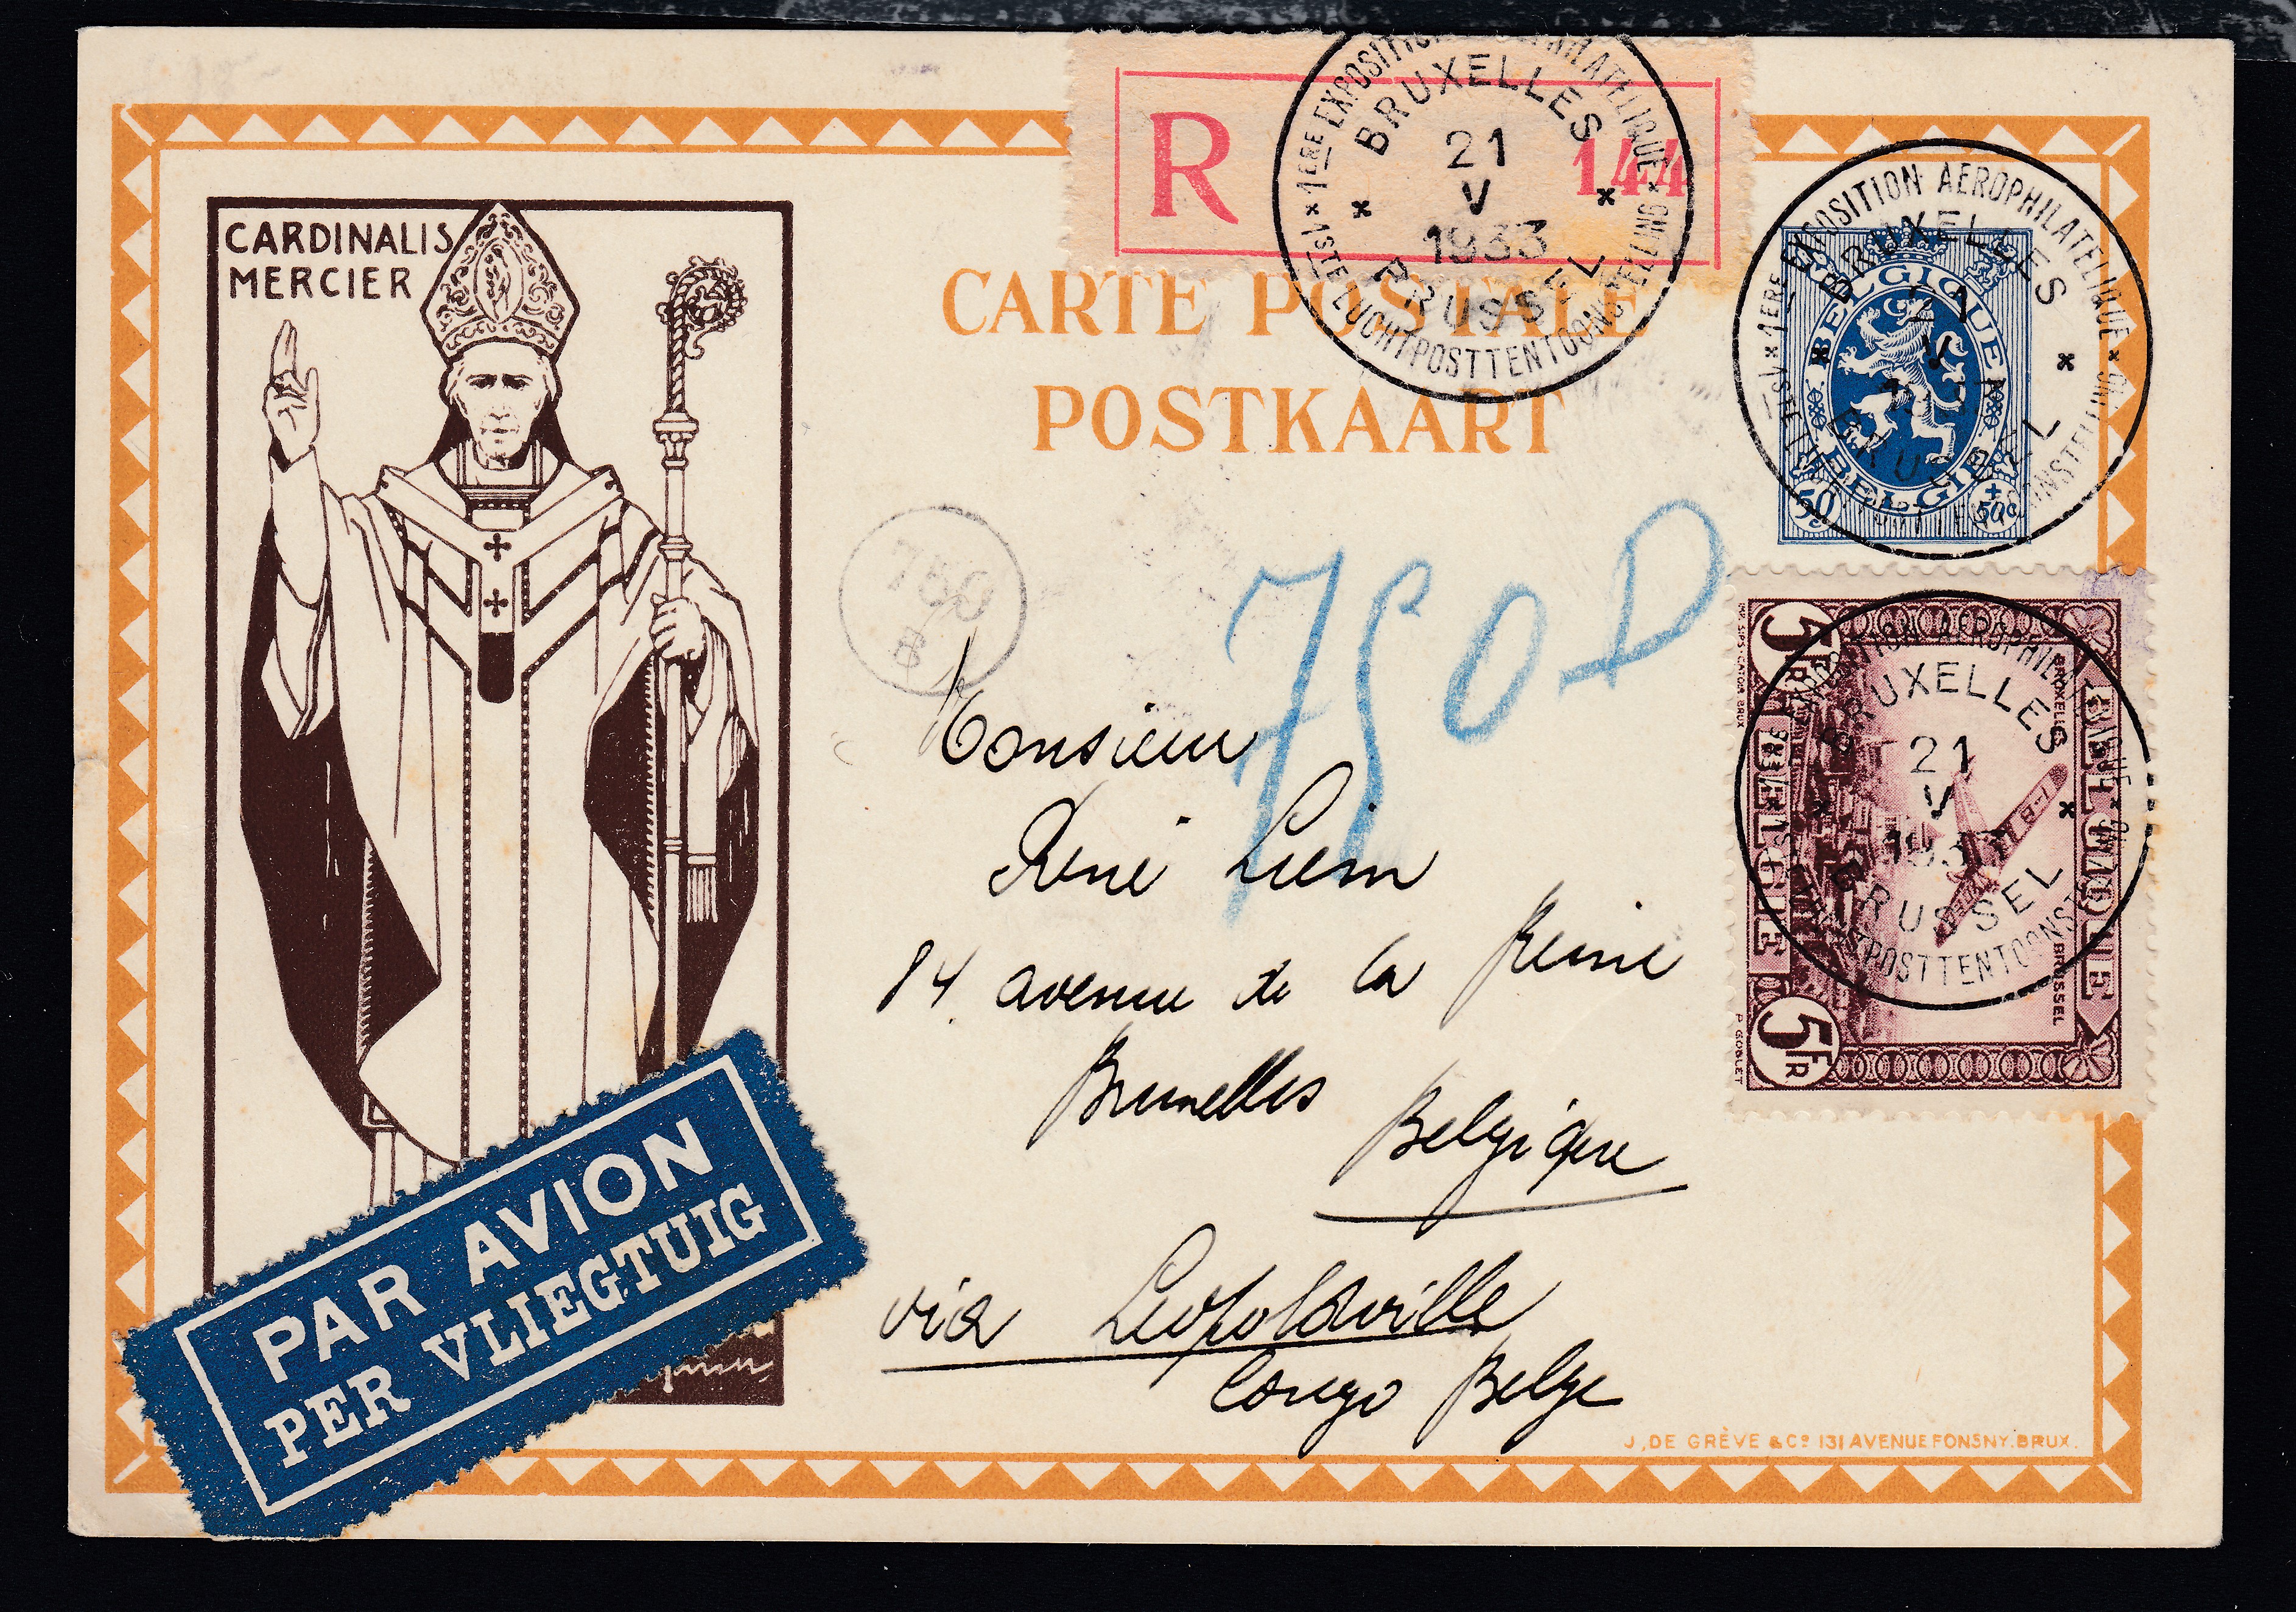 CARDINALIS
MERCIER
R
144
1ERE EXPOSITION AEROPHILATELIQUE
BRUXELLES
21
V
1933
BRUSSEL
1STE LUCHTPOSTTENTOONSTELLING
CARTE POSTALE
POSTKAART
1ERE EXPOSITION AEROPHILATELIQUE
BRUXELLES
21
V
BRUSSEL
BELGIQUE
BELGIË
50
+
50c
750
750D
5FR
BELGIQUE
BELGIË
BRUXELLES
BRUSSEL
5FR
P. GOBLET
1ERE EXPOSITION AEROPHILATELIQUE
BRUXELLES
21
V
1933
BRUSSEL
LUCHTPOSTTENTOONSTELLING
Monsieur
René Liem
84 avenue de la Reine
Bruxelles
Belgique
via Leopoldville
Congo Belge
PAR AVION
PER VLIEGTUIG
J. DE GRÈVE & Cº 131 AVENUE FONSNY. BRUX.